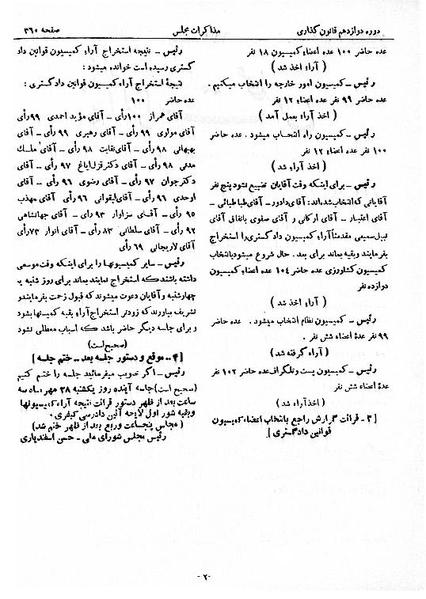 دوره دوازدهم قانون گذاری
مذاکرات مجلس
صفحه ۳۶۰
عده حاضر ۱۰۰ عده اعضاء کمیسیون ۱۸ نفر
( آراء اخذ شد )
رئیس - کمیسیون امور خارجه را انتخاب میکنیم.
عده حاضر ۹۹ نفر عده اعضاء ۱۲ نفر
( اخذ آراء بعمل آمد )
رئیس - کمیسیون راه انتخاب میشود. عده حاضر
۱۰۰ نفر عده اعضاء ۱۲ نفر
( اخذ آراء شد )
رئیس - برای اینکه وقت آقایان تضییع نشود پنج نفر
آقایانی که انتخاب شده‌اند: آقای دادور - آقای طباطبائی -
آقای اعتبار - آقای ارکانی و آقای صفوی باتفاق آقای
فیل سمیعی مقدمةً آراء کمیسیون دادگستری را استخراج
بفرمایند و بقیه بماند برای بعد. حال شروع میشود بانتخاب
کمیسیون کشاورزی عده حاضر ۱۰۴ عده اعضاء کمیسیون
دوازده نفر
( آراء اخذ شد )
رئیس - کمیسیون نظام انتخاب میشود. عده حاضر
۹۹ نفر عده اعضاء شش نفر.
( آراء گرفته شد )
رئیس - کمیسیون پست و تلگراف عده حاضر ۱۰۲ نفر
عده اعضاء شش نفر
( اخذ آراء شد )
[ ۳ - قرائت گزارش راجع بانتخاب اعضاء کمیسیون
قوانین دادگستری ]
رئیس - نتیجه استخراج آراء کمیسیون قوانین داد
گستری رسیده است خوانده میشود:
نتیجهٔ استخراج آراء کمیسیون قوانین دادگستری:
عده حاضر ۱۰۰
آقای همراز ۱۰۰ رأی - آقای مؤید احمدی ۹۹ رأی
آقای مولوی ۹۹ رأی - آقای رهبری ۹۹ رأی - آقای
بهبهانی ۹۸ رأی - آقای نقابت ۹۸ رأی - آقای ملک
مدنی ۹۸ رأی - آقای دکتر قزل ایاغ ۹۷ رأی - آقای
دکتر جوان ۹۷ رأی - آقای رضوی ۹۶ رأی - آقای
اوحدی ۹۶ رأی - آقای لیقوانی ۹۶ رأی - آقای مهذب
۹۵ رأی - آقای سزاوار ۹۳ رأی - آقای جهانشاهی
۹۲ رأی - آقای سلطانی ۸۳ رأی - آقای انوار ۷۳ رأی
آقای لاریجانی ۶۹ رأی
رئیس - سایر کمیسیونها را برای اینکه وقت موسعی
داشته باشند که استخراج نمایند بماند برای روز شنبه یا
چهارشنبه و آقایان دعوت میشوند که قبول زحمت بفرمایند و
تشریف بیاورند که زودتر استخراج آراء بقیه کمیسیونها بشود
و برای جلسه دیگر حاضر باشد که اسباب معطلی نشود
(صحیح است)
[ ۴ - موقع و دستور جلسه بعد - ختم جلسه ]
رئیس - اگر تصویب میفرمائید جلسه را ختم کنیم
(صحیح است) جلسه آینده روز یکشنبه ۲۸ مهر ماه سه
ساعت بعد از ظهر دستور قرائت نتیجه آراء کمیسیونها
و بقیه شور اول لایحه آئین دادرسی کیفری.
( مجلس پنجساعت و ربع بعد از ظهر ختم شد )
رئیس مجلس شورای ملی - حسن اسفندیاری
- ۲ -